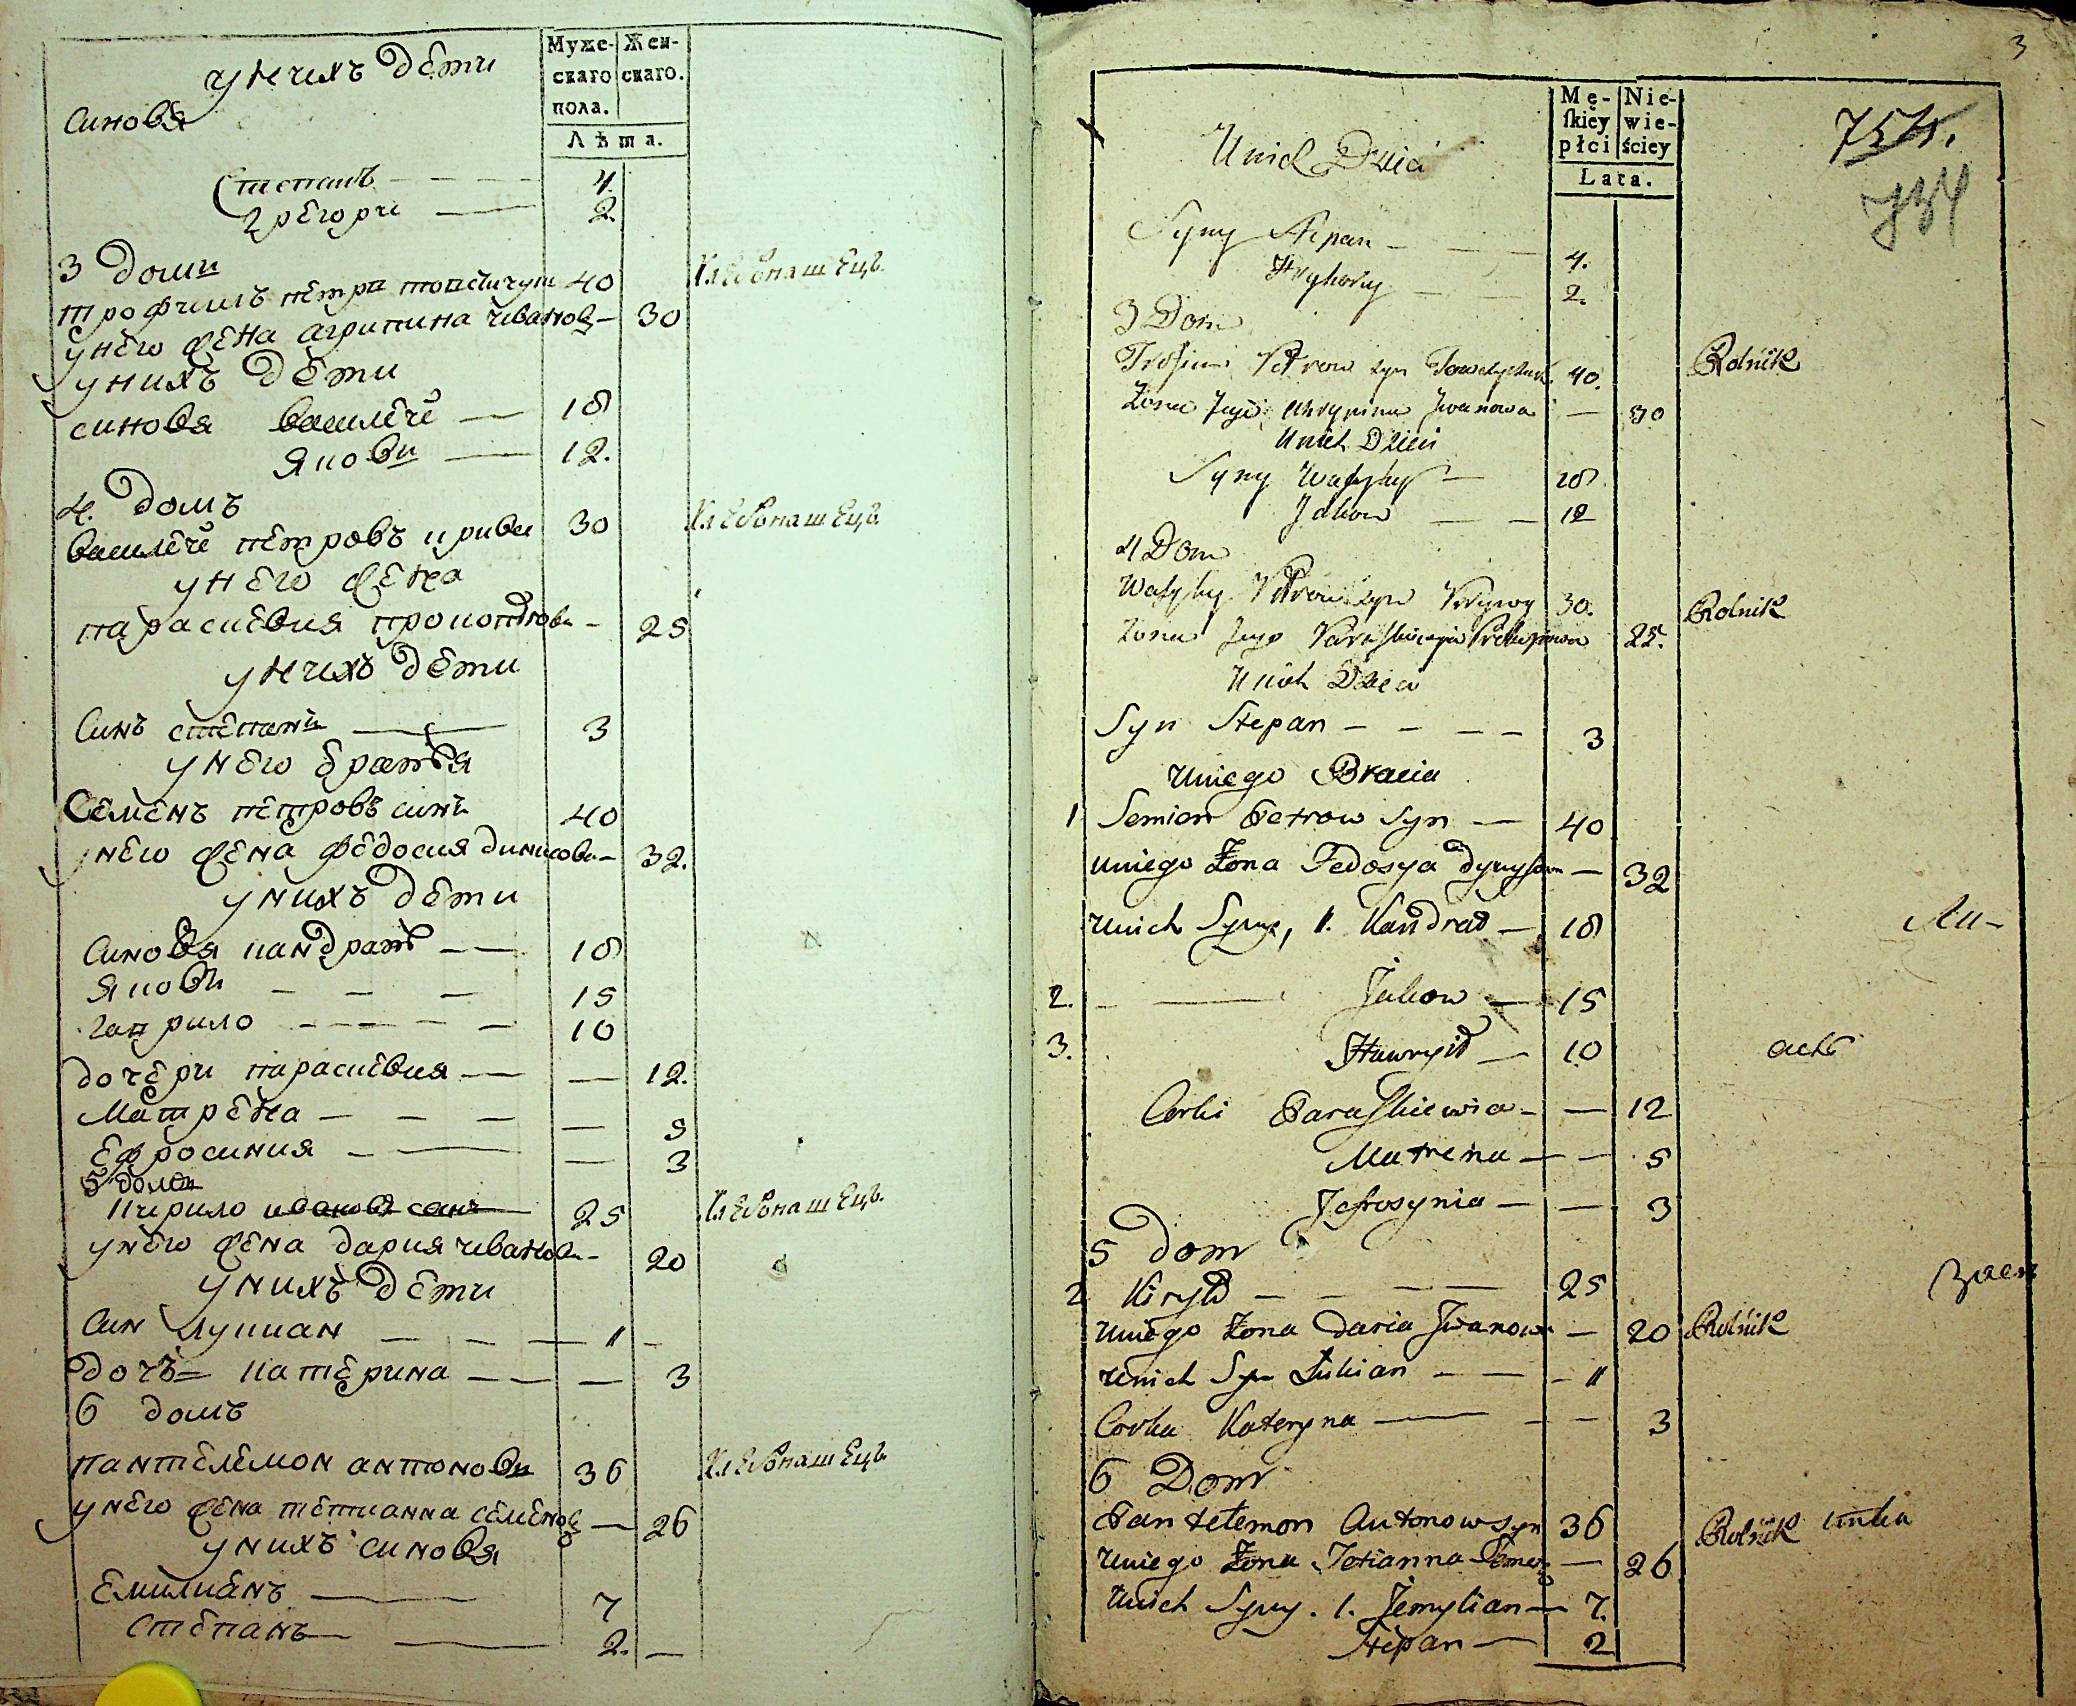 Муже-
скаго
пола.
Жен-
скаго.
Лѣта.
унихъ дѣти
синовя
Степанъ 4.
Грегорей 2.
3 домъ
трофимъ петра 40 Хлебопашецъ.
унего жена агрипина иванов 30
унихъ дѣти
синовя василей 18
яковъ 12.
4. домъ
василей петровъ 30 Хлебопашецъ.
унего жена
параскевия 25
унихъ дѣти
синъ степанъ 3
унего братья
Семенъ петровъ синъ 40
унего жена федосия динисова 32.
унихъ дѣти
синовя кандратъ 18
яковъ 15
гаврило 10
дочери параскевия 12.
Матрена 5
ефросиния 3
5 домъ
кирило ивановъ синъ 25 Хлебопашецъ.
унего жена дария иванов 20
унихъ дѣти
син лукиан 11
дочъ катерина 3
6 домъ
пантелемон антоновъ 36 Хлебопашецъ.
унего жена тетианна семенов 26
унихъ синовя
емилианъ 7
степанъ 2.
3
Mę-
skiey
płci
Nie-
wie-
ściey
Lata.
754.
734
Unich Dzieci
Syny Stepan 4.
Hryhory 2.
3 Dom
Trofim Petrow syn 40. Rolnik
Żona Jego Ahrypina Iwanowa 30
Unich Dzieci
Syny Wasyly 18
Jakow 12
4 Dom
Wasyly Petrow syn 30. Rolnik
Żona Jego Paraskiewia 25.
Unich Dzieci
Syn Stepan 3
Uniego Bracia
1 Semion Petrow Syn 40
Uniego Żona Fedosya Dynysow 32
Unich Syny, 1. Kandrad 18
2. Jakow 15
3. Hawryło 10
Corki Paraskiewia 12
Matrena 5
Jefrosynia 3
5 Dom
2 Kiryło 25
Uniego Żona Daria Iwanow 20 Rolnik
Unich Syn Lukian 11
Corka Kateryna 3
6 Dom
Pantelemon Antonow syn 36 Rolnik
Uniego Żona Tetianna Semen 26
Unich Syny. 1. Jemylian 7.
Stepan 2